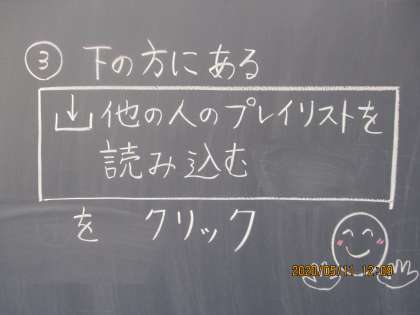 ③ 下の方にある
他の人のプレイリストを
読み込む
を クリック
2020/05/11 12:08